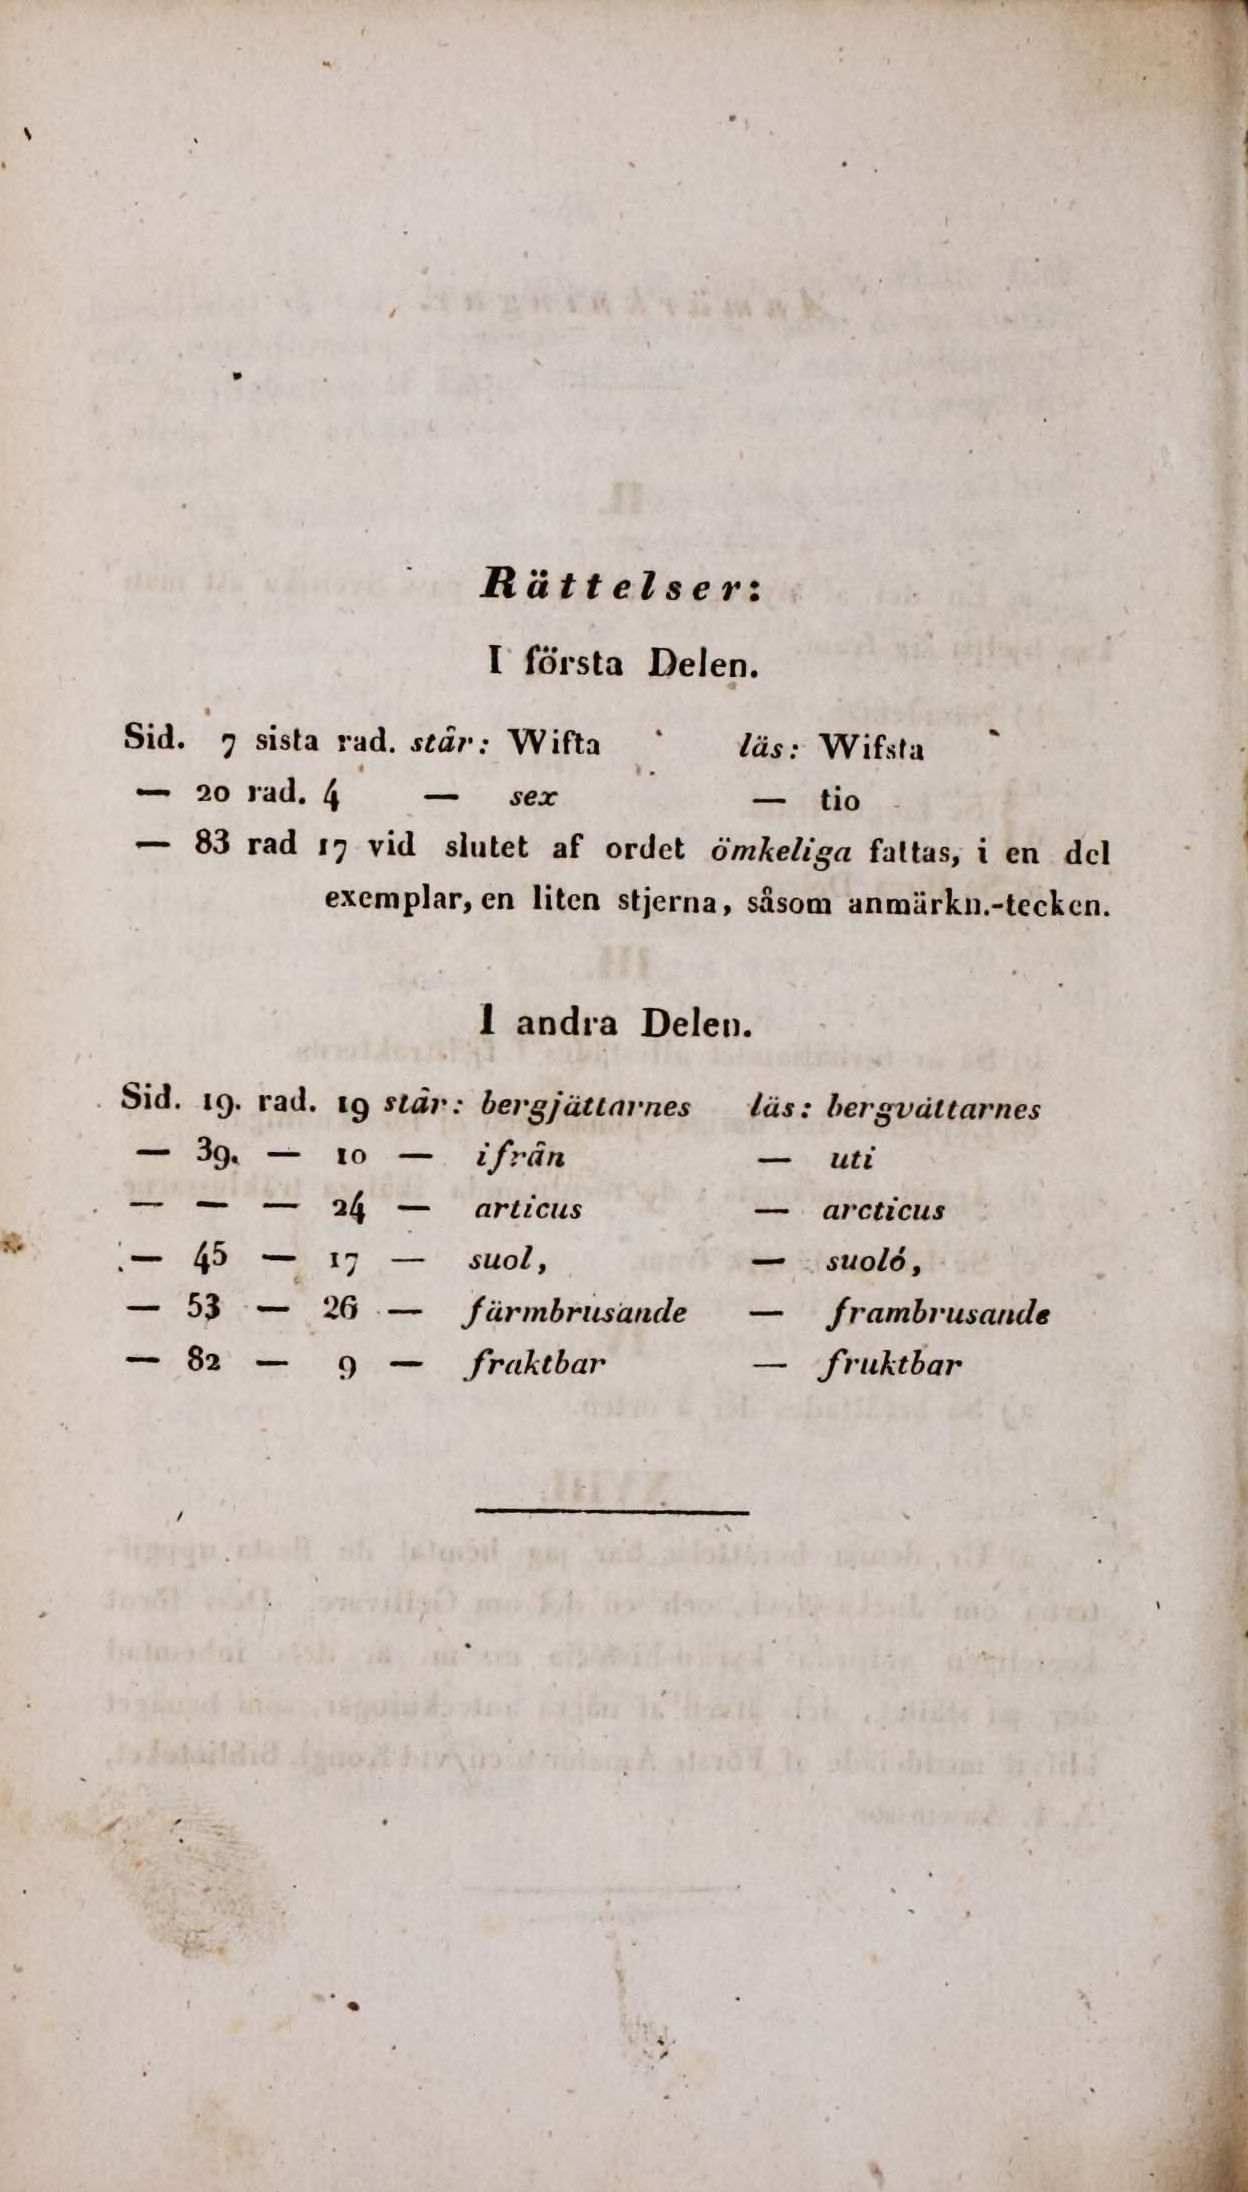 Rättelser:
I första Delen.
Sid. 7 sista rad. står: Wifta läs: Wifsta
— 20 rad. 4 — sex — tio
— 83 rad 17 vid slutet af ordet ömkeliga fattas, i en del
exemplar, en liten stjerna, såsom anmärkn.-tecken.
I andra Delen.
Sid. 19. rad. 19 står: bergjättarnes läs: bergvättarnes
— 39. — 10 — ifrån — uti
— — — 24 — articus — arcticus
— 45 — 17 — suol, — suoló,
— 53 — 26 — färmbrusande — frambrusande
— 82 — 9 — fraktbar — fruktbar